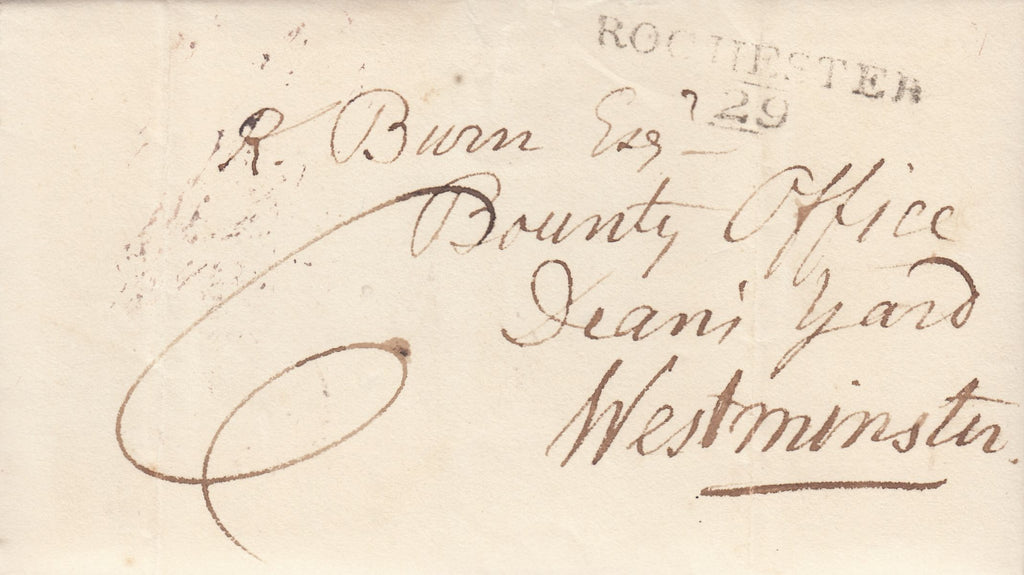 ROCHESTER
29
R. Burn Esqr
Bounty Office
Dean's Yard
Westminster.